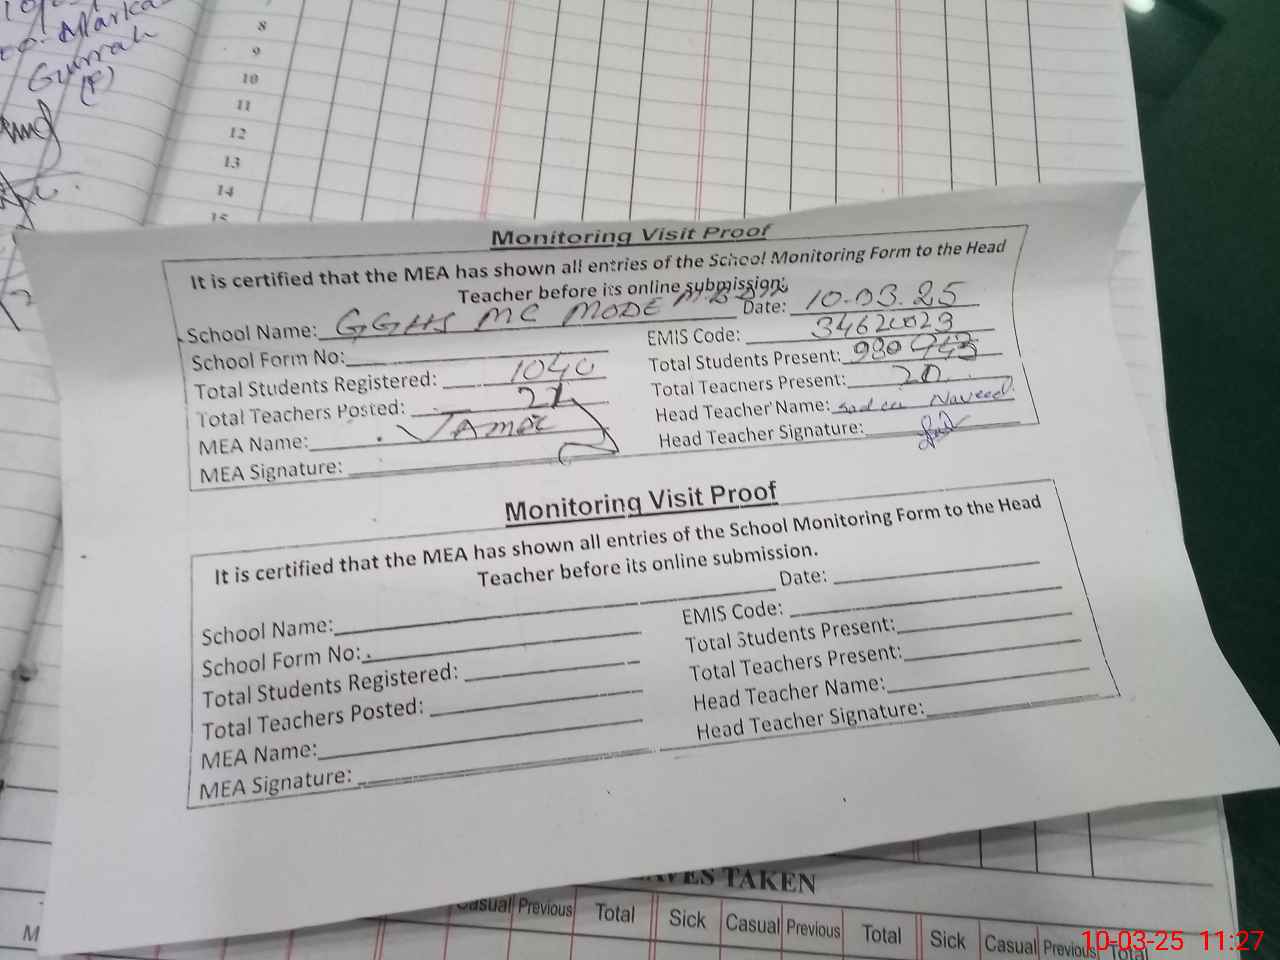 Marka
Gurrah
(P)
8
9
10
11
12
13
14
15
Monitoring Visit Proof
It is certified that the MEA has shown all entries of the School Monitoring Form to the Head
Teacher before its online submission.
School Name: GGHS MC MODE Date: 10.03.25
School Form No: EMIS Code:
Total Students Registered: 1040 Total Students Present: 980
Total Teachers Posted: Total Teachers Present: 20
MEA Name: Head Teacher Name: Naveed
MEA Signature: Head Teacher Signature:
Monitoring Visit Proof
It is certified that the MEA has shown all entries of the School Monitoring Form to the Head
Teacher before its online submission.
School Name: Date:
School Form No: EMIS Code:
Total Students Registered: Total Students Present:
Total Teachers Posted: Total Teachers Present:
MEA Name: Head Teacher Name:
MEA Signature: Head Teacher Signature:
TAKEN
Casual Previous Total Sick Casual Previous Total Sick Casual Previous Total
M
10-03-25 11:27